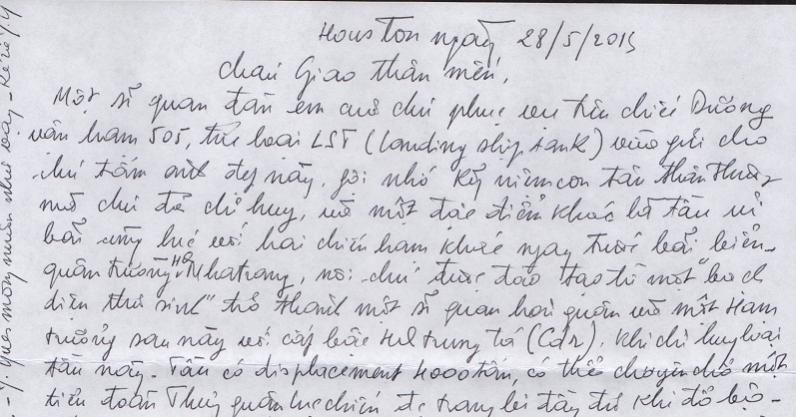 Houston ngày 28/5/2015
cháu Giao thân mến,
Một sĩ quan đàn em cũ chú phục vụ trên chiếc Dương
vận hạm 505, thứ loại LST (Landing ship tank) vừa gửi cho
chú tấm ảnh đẹp này, gợi nhớ kỷ niệm con tàu thân thương
mà chú đã chỉ huy, và một đặc điểm khác là tàu ủi
bãi cùng lúc với hai chiến hạm khác ngay trước bãi biển
quân trường HQ Nhatrang, nơi chú được đào tạo từ một "bạch
diện thư sinh" trở thành một sĩ quan hải quân và một Hạm
trưởng sau này với cấp bậc HQ trung tá (Cdr), khi chỉ huy loại
tàu này. Tàu có displacement 4000 tấn, có thể chuyên chở một
tiểu đoàn Thuỷ quân lục chiến để trang bị đầy đủ khi đổ bộ-
mong muốn như vậy -